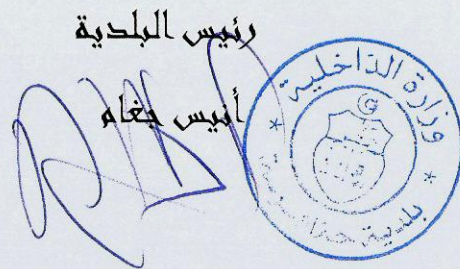 رئيس البلدية
أنيس جغام
وزارة الداخلية
بلدية